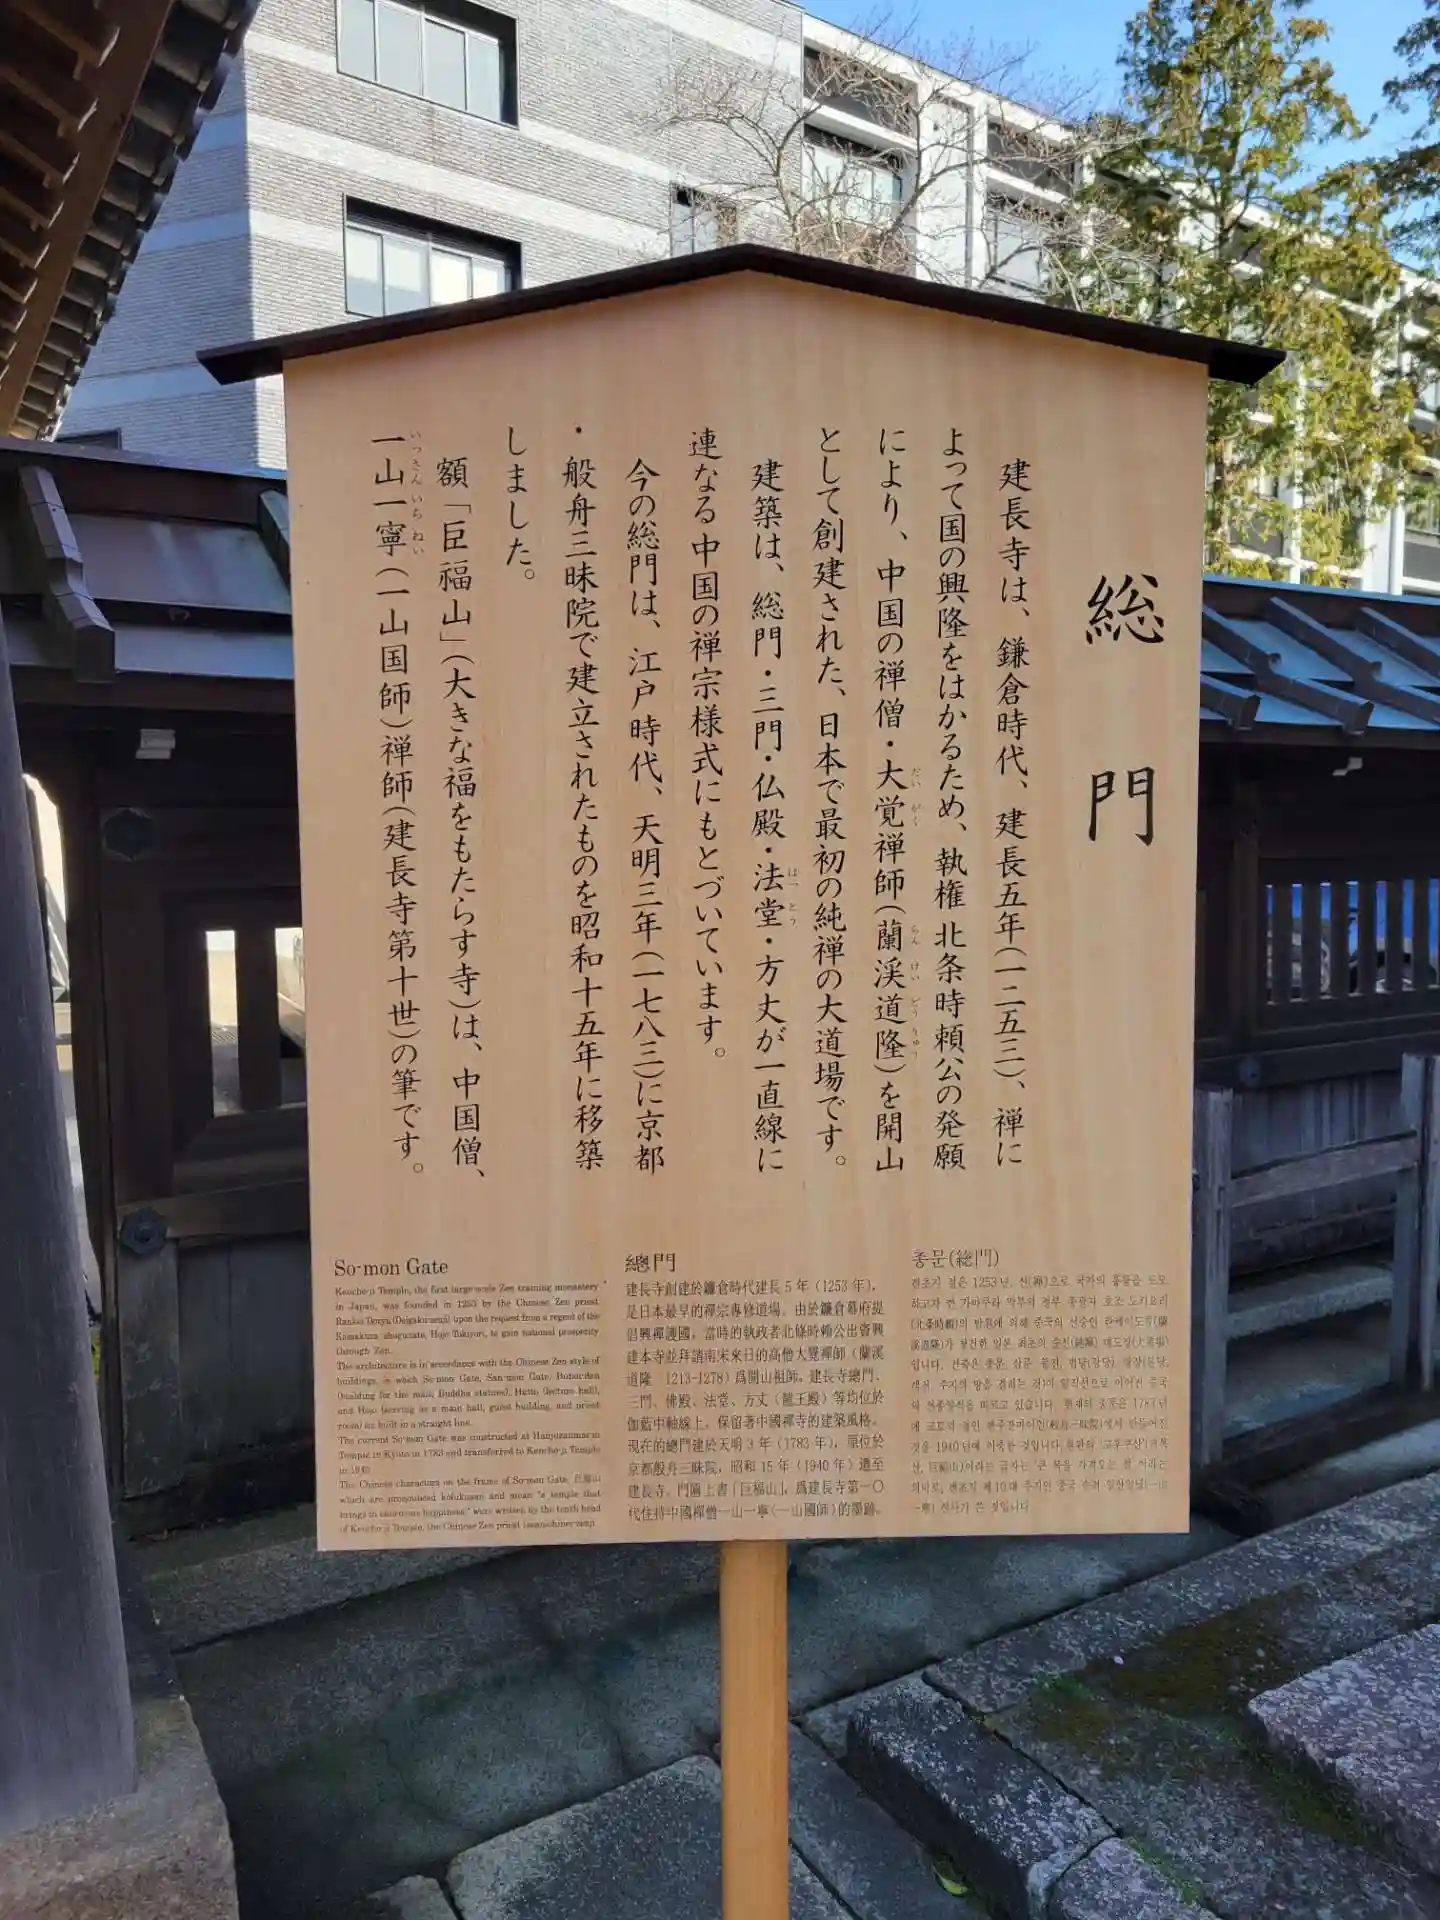 総門
建長寺は、鎌倉時代、建長五年(一二五三)、禅に
よって国の興隆をはかるため、執権 北条時頼公の発願
により、中国の禅僧・大覚禅師(蘭渓道隆)を開山
として創建された、日本で最初の純禅の大道場です。
建築は、総門・三門・仏殿・法堂・方丈が一直線に
連なる中国の禅宗様式にもとづいています。
今の総門は、江戸時代、天明三年(一七八三)に京都
・般舟三昧院で建立されたものを昭和十五年に移築
しました。
額「巨福山」(大きな福をもたらす寺)は、中国僧、
一山一寧(一山国師)禅師(建長寺第十世)の筆です。
So-mon Gate
Kencho-ji Temple, the first large-scale Zen training monastery
in Japan, was founded in 1253 by the Chinese Zen priest
Rankei Doryu (Daigakuzenji) upon the request from a regent of the
Kamakura shogunate, Hojo Tokiyori, to gain national prosperity
through Zen.
The architecture is in accordance with the Chinese Zen style of
buildings, in which So-mon Gate, San-mon Gate, Butsu-den
(building for the main Buddha statues), Hatto (lecture hall),
and Hojo (serving as a main hall, guest building, and priest
room) are built in a straight line.
The current So-mon Gate was constructed at Hanjuzanmai-in
Temple in Kyoto in 1783 and transferred to Kencho-ji Temple
in 1940.
The Chinese characters on the frame of So-mon Gate, 巨福山
which are pronounced kofukusan and mean "a temple that
brings in enormous happiness," were written by the tenth head
of Kencho-ji Temple, the Chinese Zen priest Issanichinei-zenji.
總門
建長寺創建於鎌倉時代建長 5 年(1253 年),
是日本最早的禪宗專修道場。由於鎌倉幕府提
倡興禪護國,當時的執政者北條時賴公出資興
建本寺並拜請南宋来日的高僧大覺禪師(蘭溪
道隆 1213-1278)爲開山祖師。建長寺總門、
三門、佛殿、法堂、方丈(龍王殿)等均位於
伽藍中軸線上,保留著中國禪寺的建築風格。
現在的總門建於天明 3 年(1783 年),原位於
京都般舟三昧院,昭和 15 年(1940 年)遷至
建長寺。門匾上書「巨福山」,爲建長寺第一〇
代住持中國禪僧一山一寧(一山國師)的墨跡。
총문(総門)
겐초지 절은 1253년, 선(禪)으로 국가의 흥륭을 도모